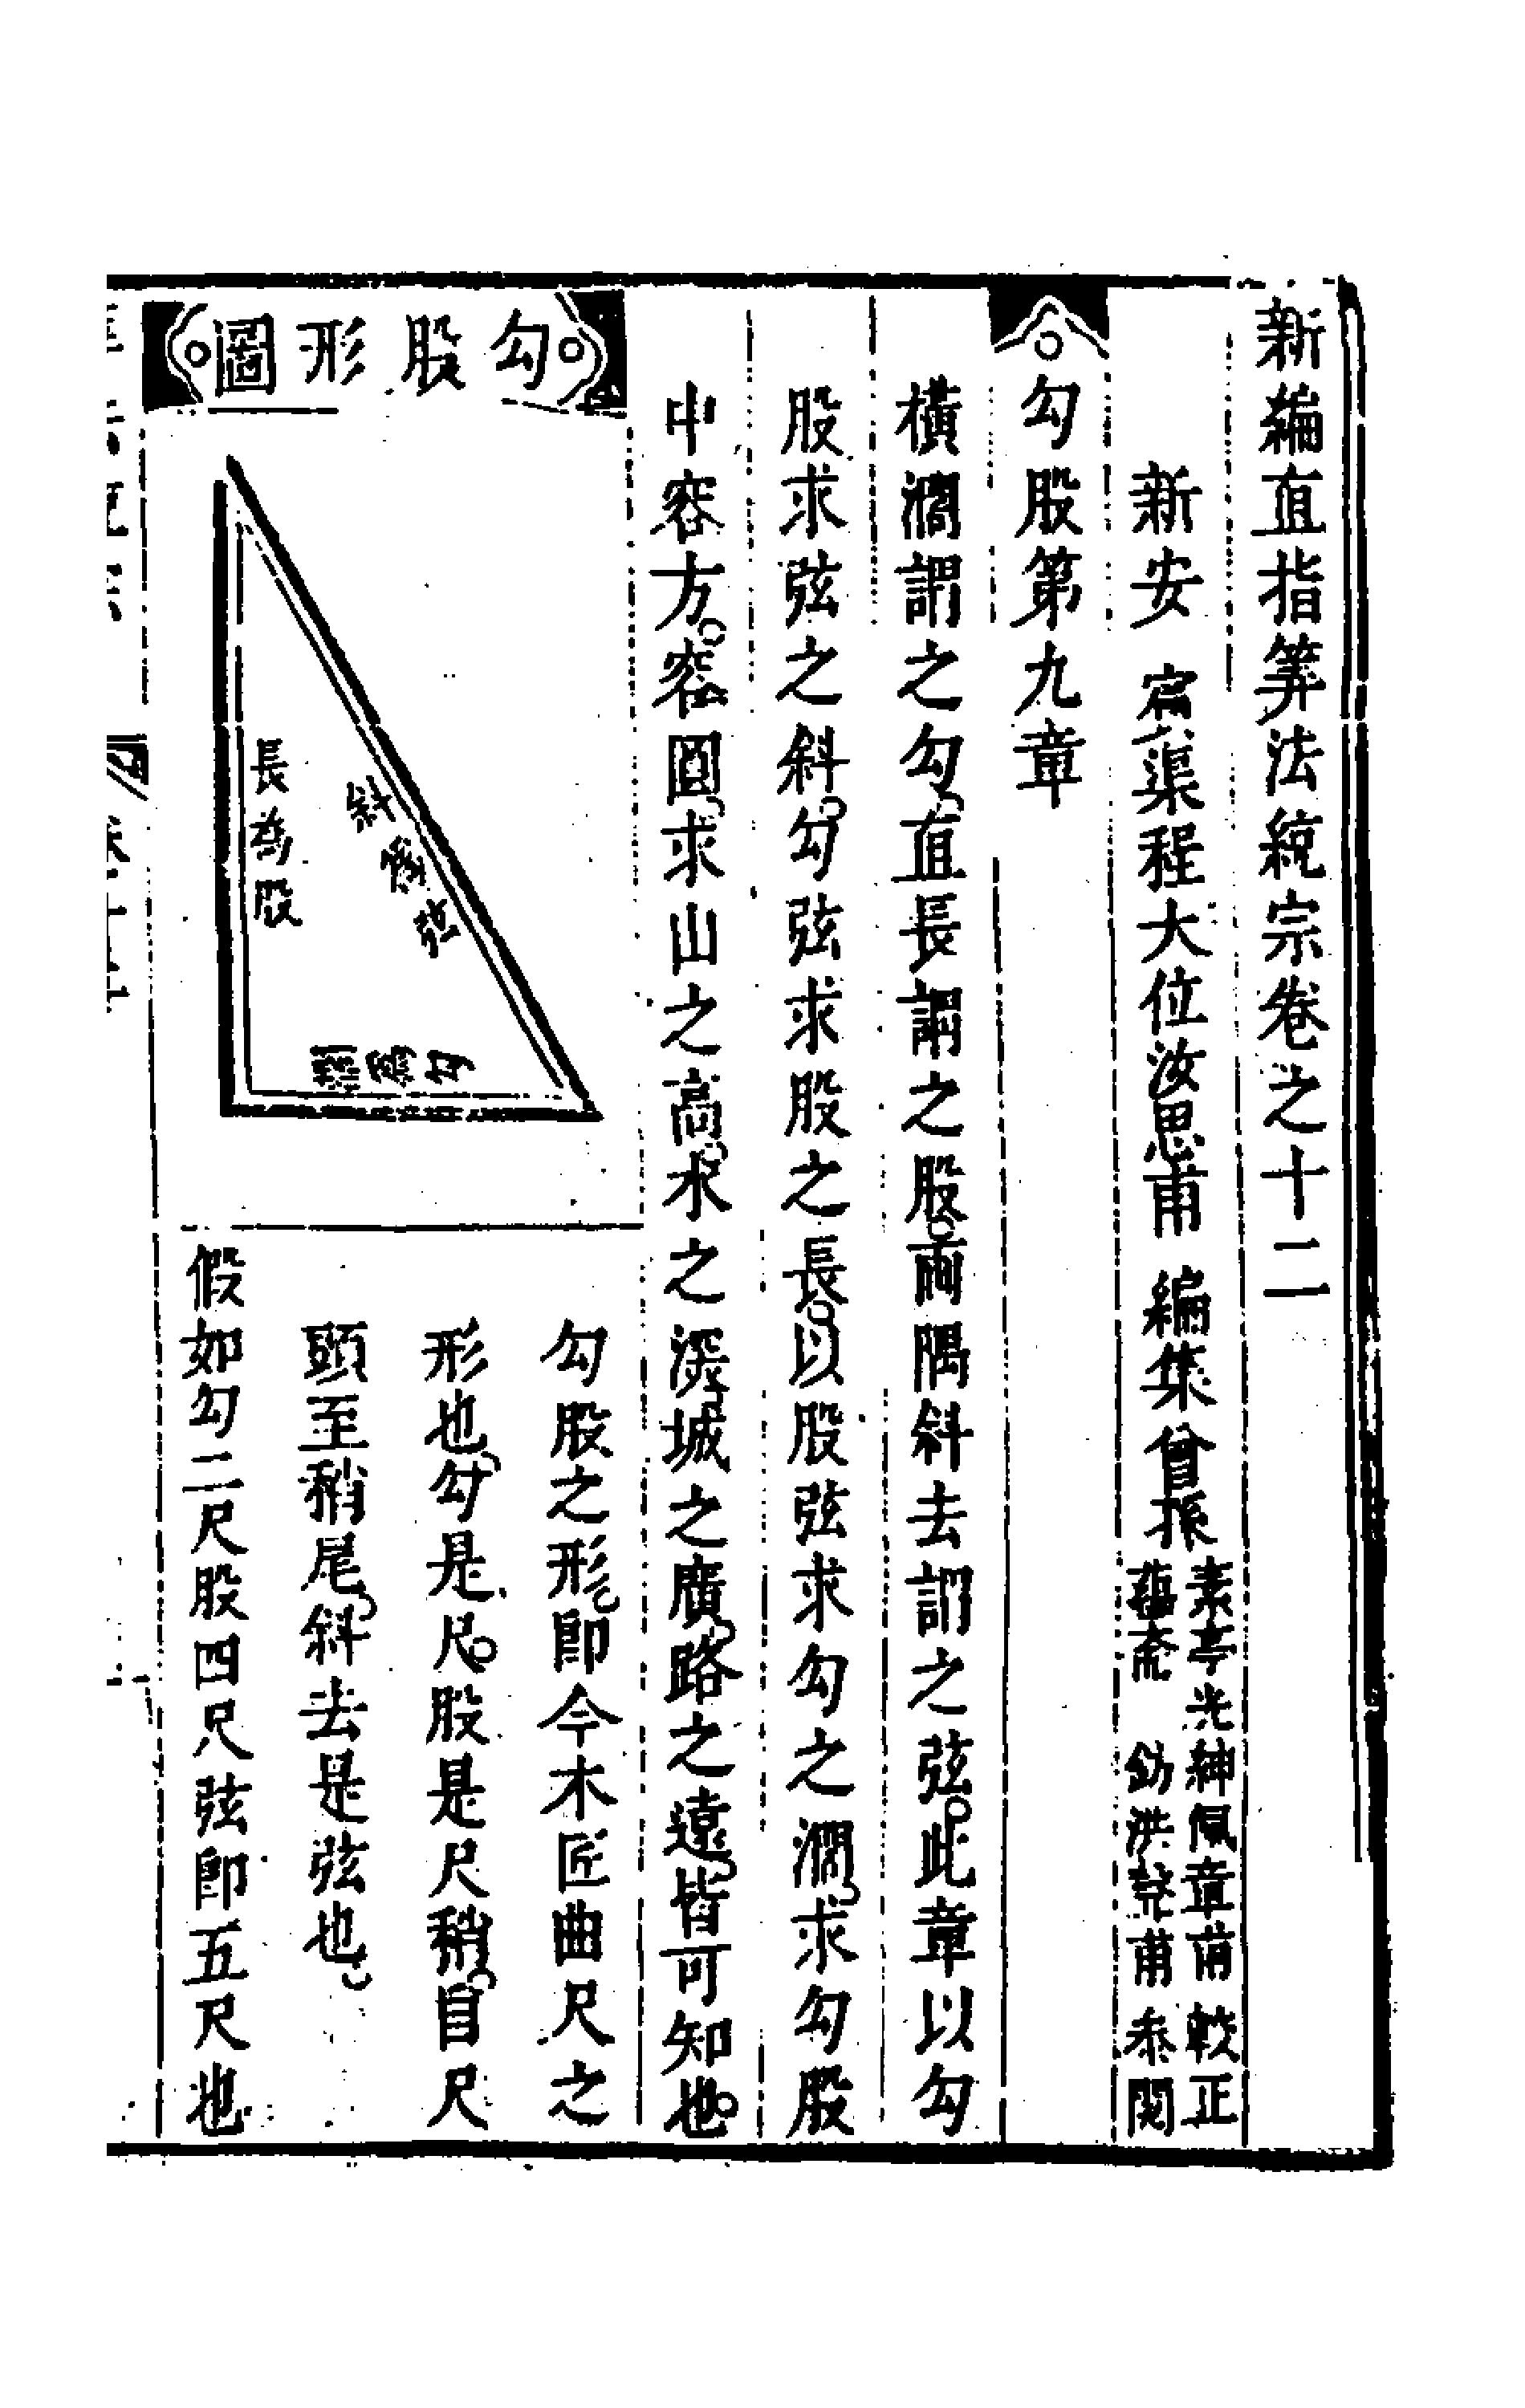 新編直指筭法統宗卷之十二
新安 賔渠程大位汝思甫 編集 曾孫
素亭光紳佩章甫 較正
蘊斋 鈁洪聲甫 叅閱
勾股第九章
橫濶謂之勾直長謂之股兩隅斜去謂之弦此章以勾
股求弦之斜勾弦求股之長以股弦求勾之濶求勾股
中容方容圓求山之高水之深城之廣路之遠皆可知也
勾股形圖
長為股
斜爲弦
濶爲勾
勾股之形即今木匠曲尺之
形也勾是尺股是尺稍自尺
頭至稍尾斜去是弦也
假如勾三尺股四尺弦即五尺也